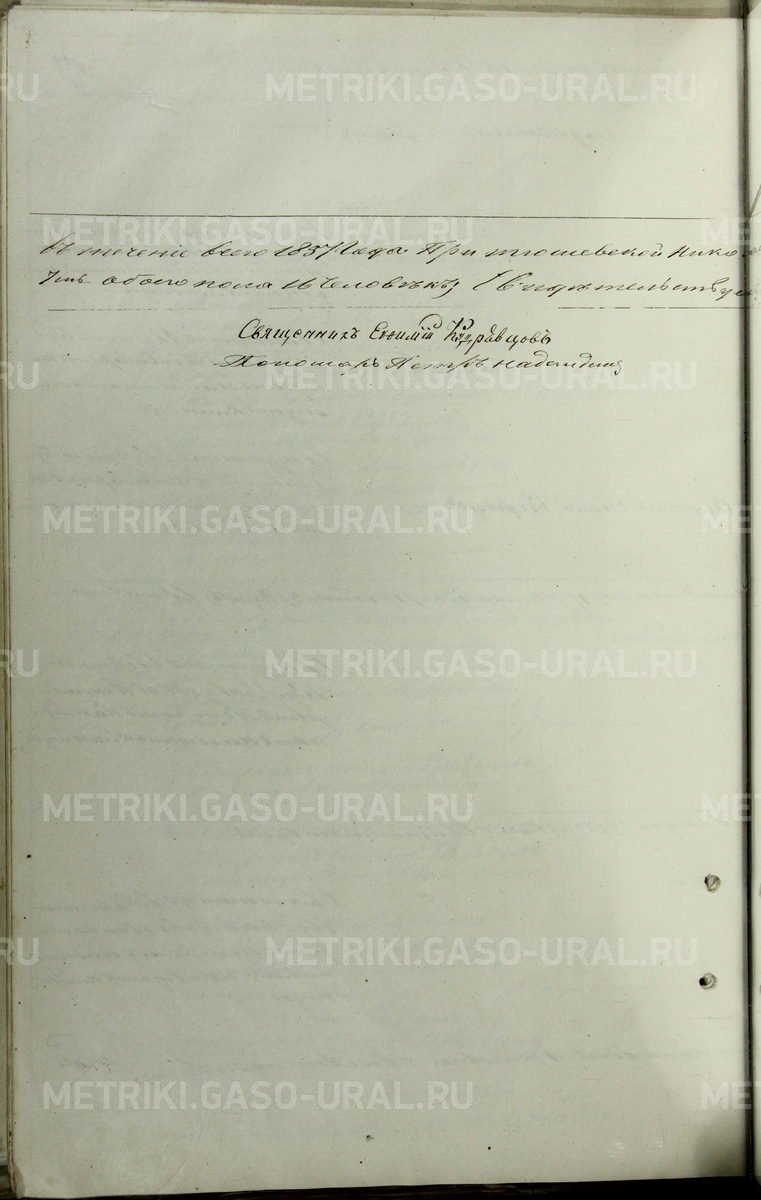 METRIKI.GASO-URAL.RU
Въ теченіе всего 1857 Года При тюшевской Нико
7мь обоего пола 16 Человѣкъ; Свидѣтельству
METRIKI.GASO-URAL.RU
Священникъ Евѳимій Кудрявцовъ
Пономарь Петръ
METRIKI.GASO-URAL.RU
METRIKI.GASO-URAL.RU
METRIKI.GASO-URAL.RU
METRIKI.GASO-URAL.RU
METRIKI.GASO-URAL.RU
METRIKI.GASO-URAL.RU